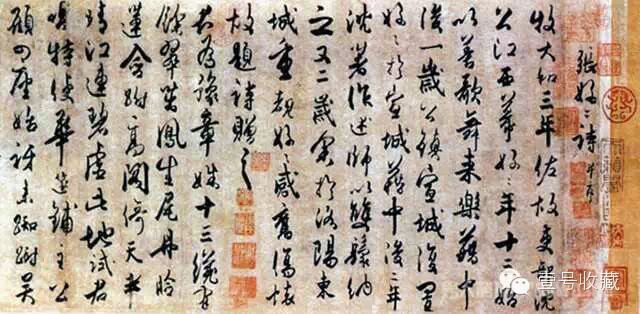 張好〻詩 并序
牧大和三年佐故吏部沈
公江西幕好〻年十三始
以善歌舞来樂籍中
後一歲公鎮宣城復置
好〻於宣城籍中後二年
沈著作述師以雙鬟納
之又二歲余於洛陽東
城重覩好〻感舊傷懷
故題詩贈之
君為豫章姝十三纔有
餘翠茁鳳生尾丹臉
蓮含跗高閣倚天半
晴江連碧虛此地試君
唱特使華筵鋪主公
顧四座始訝来踟蹰吳
壹号收藏